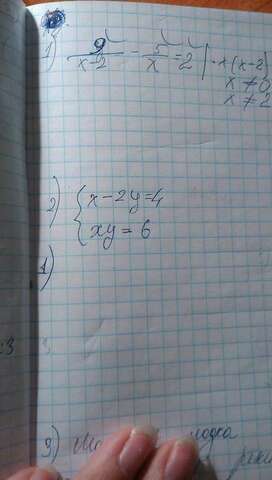 1) 9/(x-2) - 5/x = 2 | · x(x-2)
x ≠ 0
x ≠ 2
2) { x-2y=4
xy = 6
1)
:3
3) лодка